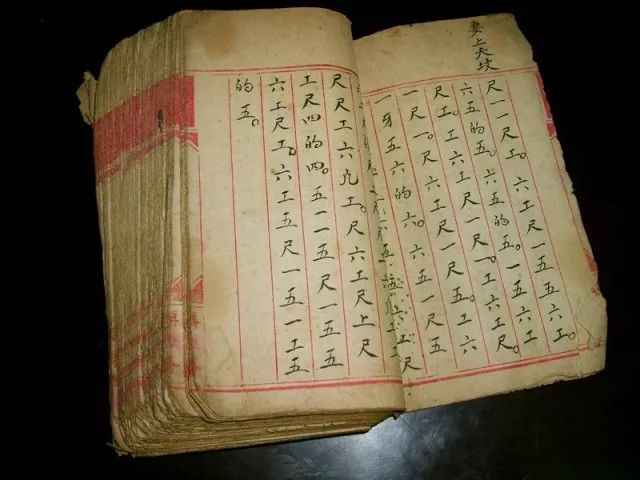 妻上大坟
尺一一尺工。六工尺一五五六工。
六五的五。六五的五。一五六工
尺工。工六工尺一一。工六工尺。
一尺一。尺六工尺一尺五。工六
一牙五六的六。六五一尺五
尺尺工六凡工。尺六工尺上尺
工尺四的四。五一一五尺一五五
六工尺工。六工五尺一五一工五
的五。